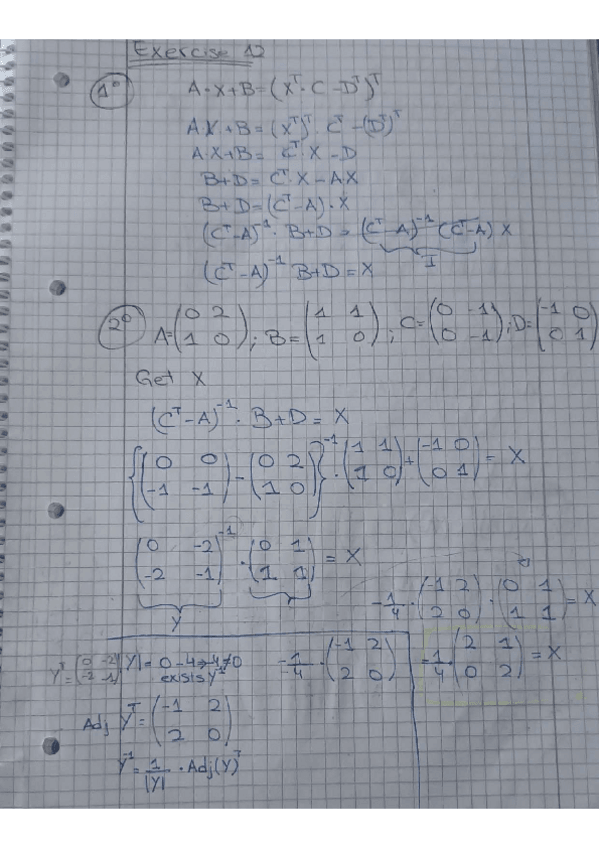 Exercise 12
1º
A·X+B=(Xᵀ·C-Dᵀ)ᵀ
A·X+B=(Xᵀ)ᵀ·Cᵀ-(Dᵀ)ᵀ
A·X+B= Cᵀ·X-D
B+D= Cᵀ·X-A·X
B+D=(Cᵀ-A)·X
(Cᵀ-A)⁻¹·B+D=(Cᵀ-A)⁻¹(Cᵀ-A)X
I
(Cᵀ-A)⁻¹ B+D=X
2º A=(0 2; 1 0); B=(1 1; 1 0); C=(0 -1; 0 -1); D=(-1 0; 0 1)
Get X
(Cᵀ-A)⁻¹·B+D=X
{(0 0; -1 -1)-(0 2; 1 0)}⁻¹·(1 1; 1 0)+(-1 0; 0 1)= X
(0 -2; -2 -1)⁻¹·(0 1; 1 1)=X
Y
-1/4·(-1 2; 2 0)·(0 1; 1 1)=X
Yᵀ=(0 -2; -2 -1) |Y|=0-4→-4≠0 exists Y⁻¹
1/-4·(-1 2; 2 0)
-1/4·(2 1; 0 2)=X
Adj Yᵀ=(-1 2; 2 0)
Y⁻¹=1/|Y|·Adj(Y)ᵀ